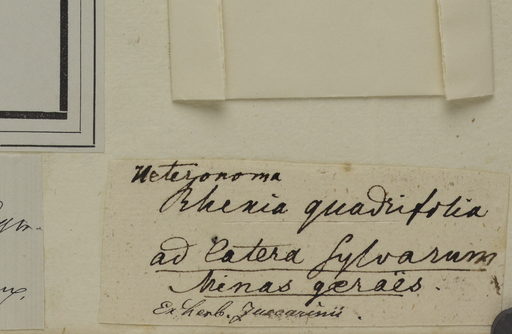 Heteronoma
Rhexia quadrifolia
ad latera sylvarum
Minas geraës.
Ex herb. Zuccarinii.